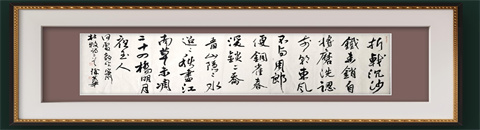 折戟沉沙
鐵未銷自
將磨洗認
前朝東風
不與周郎
便銅雀春
深鎖二喬
青山隱隱水
迢迢秋盡江
南草未凋
二十四橋明月
夜玉人
何處教吹簫
杜牧詩二首